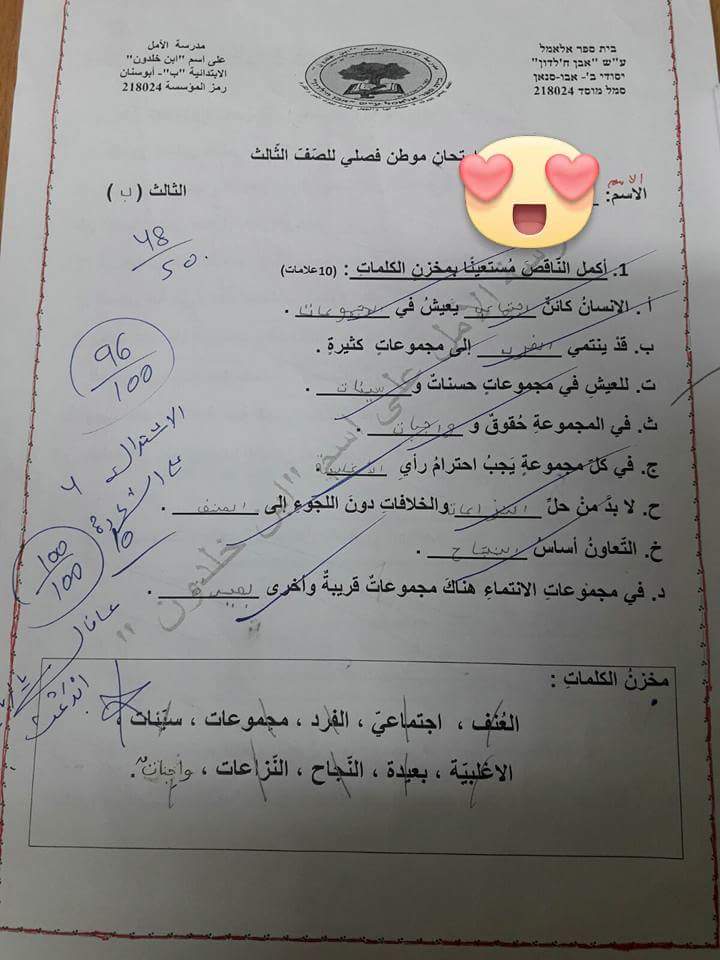 مدرسة الأمل
على اسم "ابن خلدون"
الابتدائية "ب"- أبوسنان
رمز المؤسسة 218024
בית ספר אלאמל
ע"ש "אבן ח'לדון"
יסודי ב'- אבו-סנאן
סמל מוסד 218024
امتحان موطن فصلي للصّفّ الثّالث
الاسم
الاسم: الثالث ( ب )
48
50
1. أكمل النّاقصَ مُستعينًا بمخزنِ الكلماتِ : (10علامات)
أ. الانسانُ كائنٌ اجتماعيّ يعيشُ في مجموعات .
ب. قد ينتمي الفرد إلى مجموعاتٍ كثيرةٍ .
ت. للعيشِ في مجموعاتٍ حسناتٌ و سيئات .
ث. في المجموعةِ حُقوقٌ و واجبات .
ج. في كلّ مجموعةٍ يَجبُ احترامُ رأيِ الأغلبية .
ح. لا بدَّ منْ حلِّ النزاعات والخلافاتِ دونَ اللجوءِ إلى العنف .
خ. التّعاونُ أساسُ النجاح .
د. في مجموَعاتِ الانتماءِ هناكَ مجموعاتٌ قريبةٌ وأخرى بعيدة .
96
100
100
100
مخزنُ الكلماتِ :
العُنف ، اجتماعيّ ، الفرد ، مجموعات ، سيّئات ،
الاغلبيّة ، بعيدة ، النّجاح ، النّزاعات ، واجبات .
على اسم "ابن خلدون"